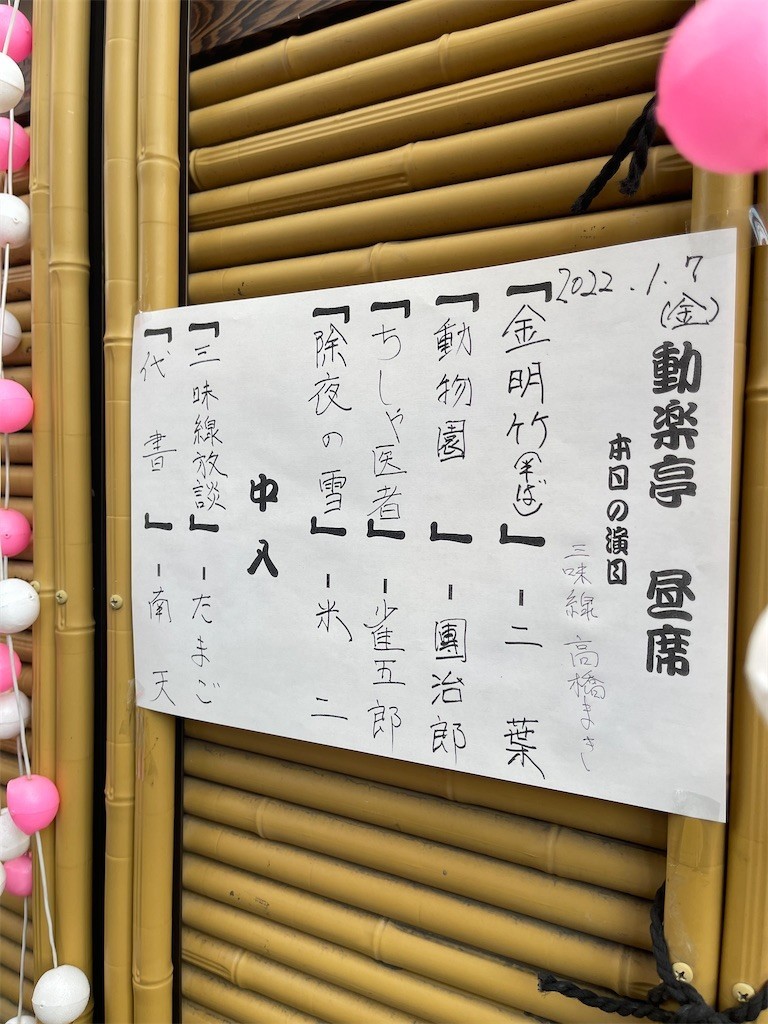 2022.1.7
(金)
動楽亭 昼席
本日の演目
三味線 高橋まき
「金明竹(半ば)」-二葉
「動物園」-團治郎
「ちしゃ医者」-雀五郎
「除夜の雪」-米二
中入
「三味線放談」-たまご
「代書」-南天